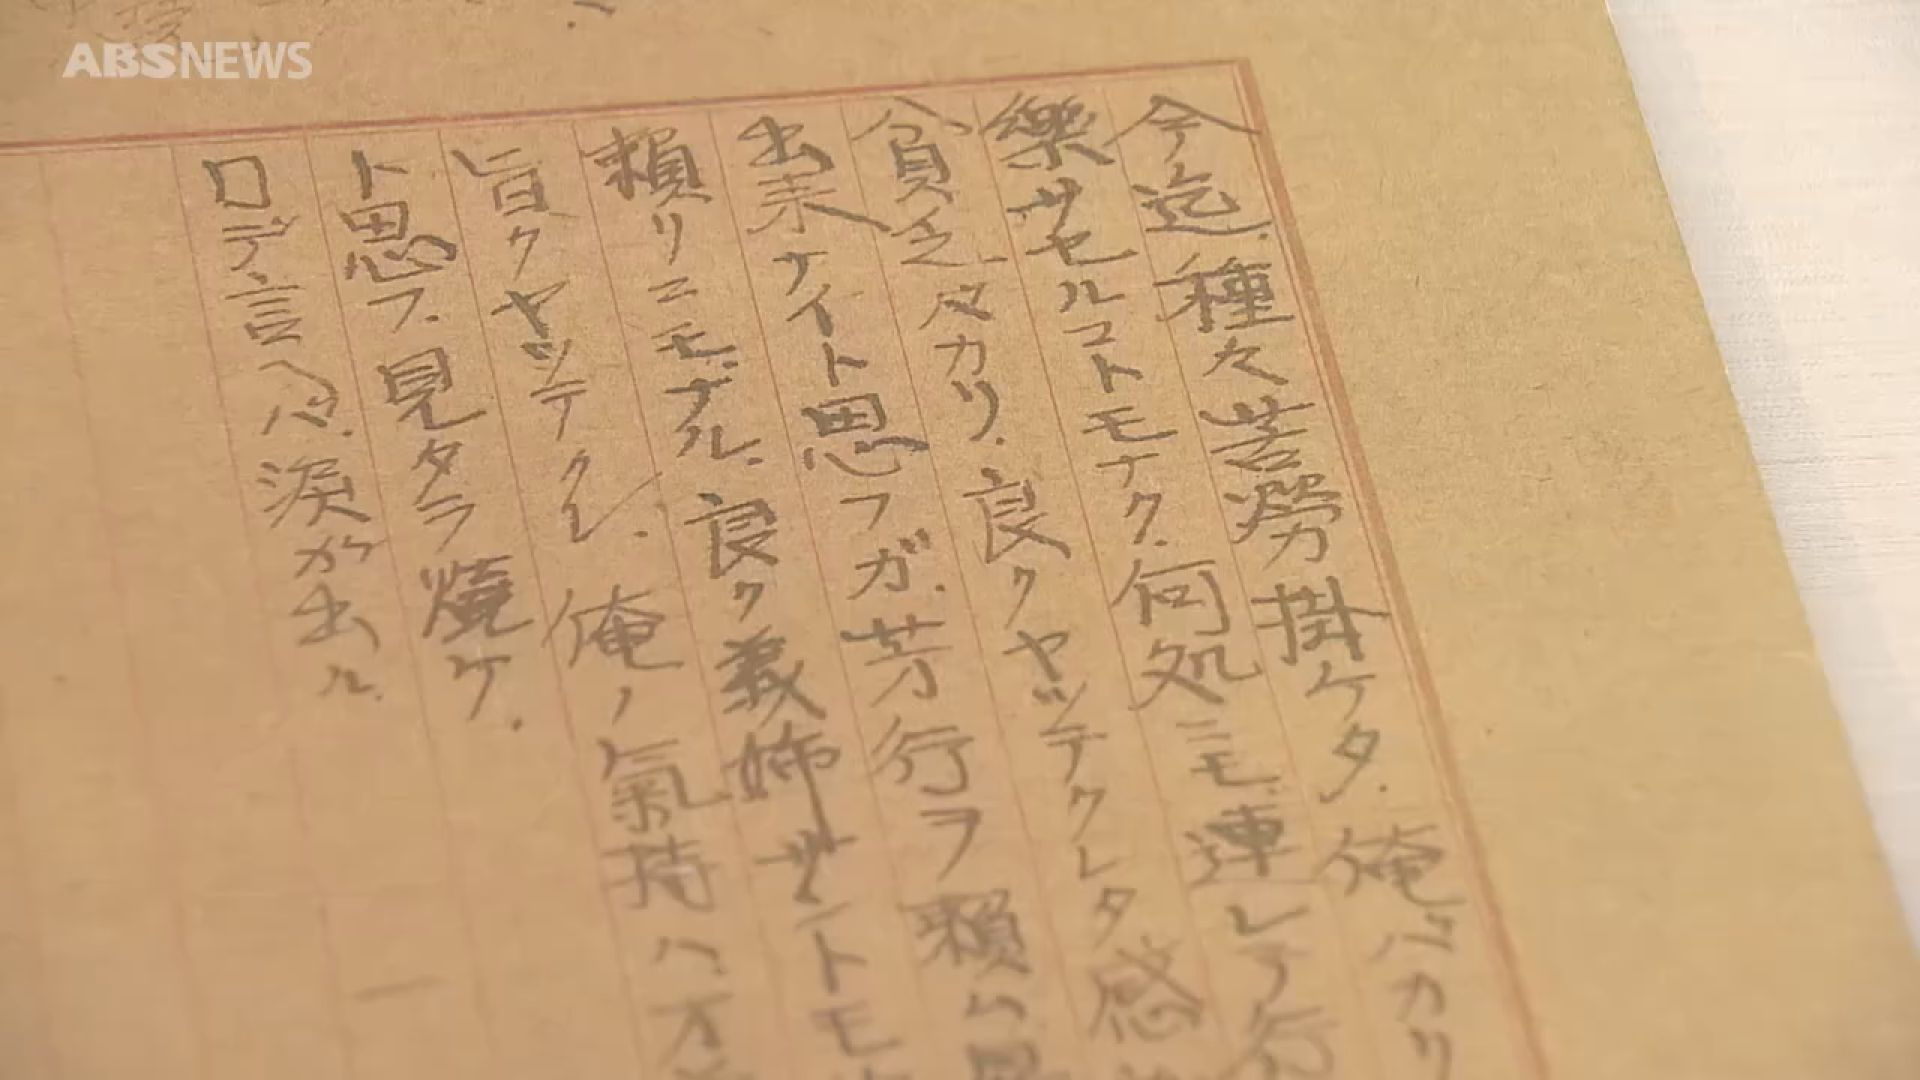 ABSNEWS
今迄種々苦労掛ケタ.俺バカリ
樂サセルコトモナク.何処ニモ連レテ行
貧乏バカリ.良クヤッテクレタ感
出来ナイト思フガ.芳行ヲ頼ム
頼リニモナル.良ク義姉サントモ
旨クヤッテクレ.俺ノ氣持ハ
ト思フ.見タラ燒ケ.
口デ言ヘバ.涙が出ル.